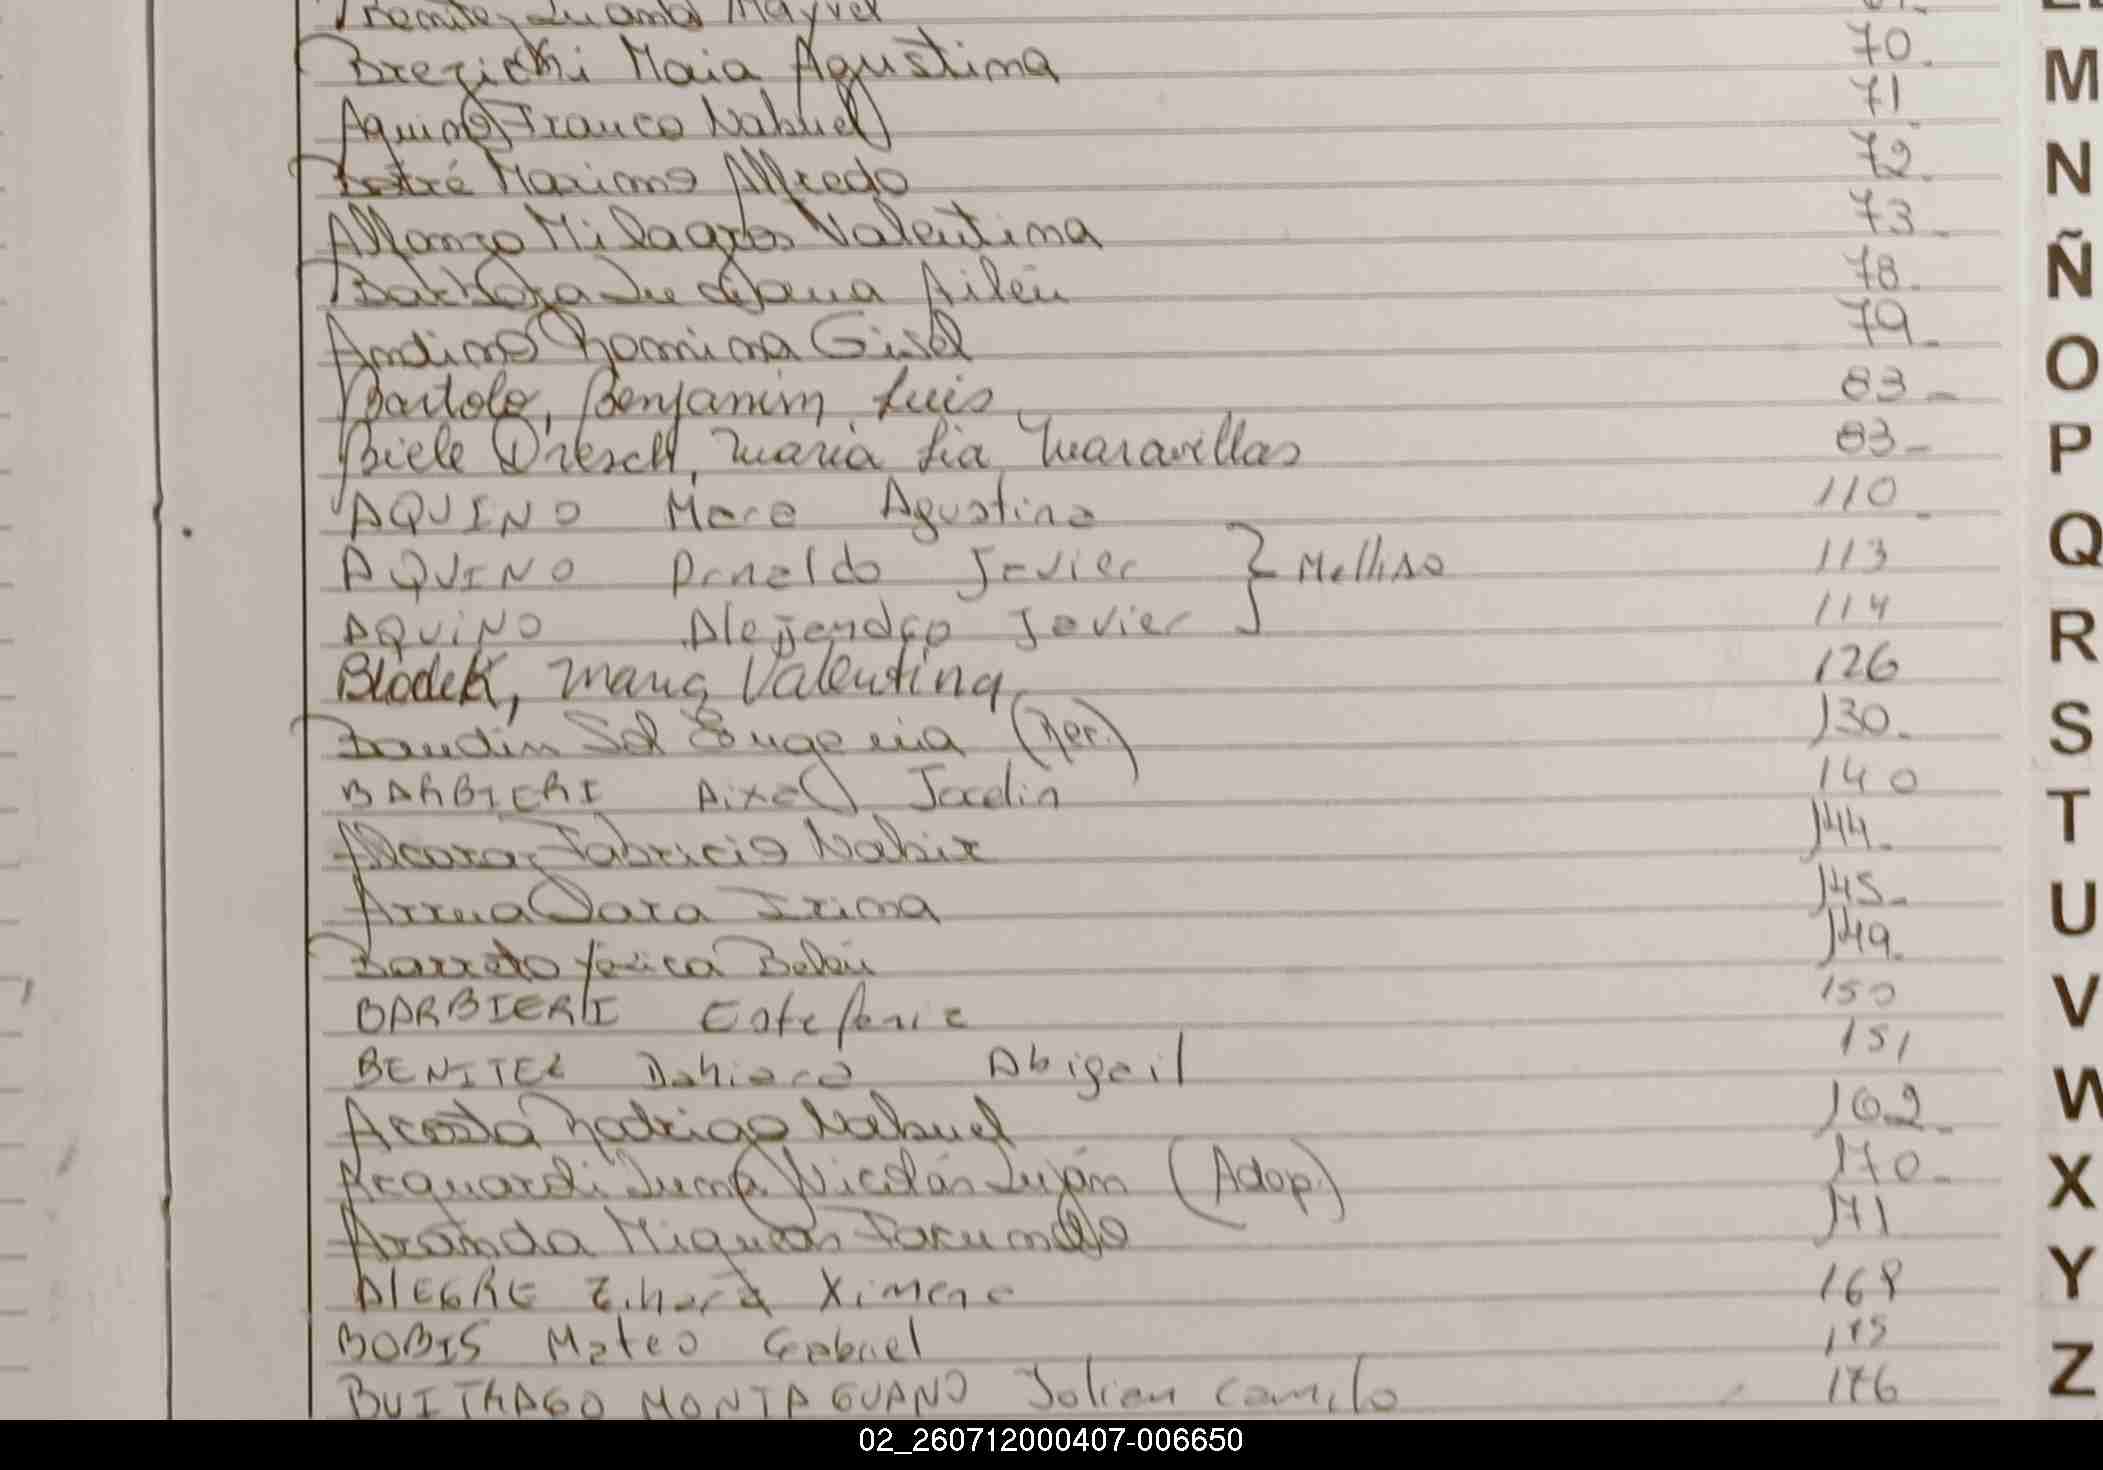 Benitez Juana Mayvel
Brezichi Maia Agustina 70.
Aquino Franco Nahuel 71
Maximo Alfredo 72.
Alfonzo Milagros Valentina 73.
Barboza Luciana Ailén 78.
Andino Romina Gisel 79.
Bartolo, Benjamin Luis 83-
Biele Dresch, maria Lia Maravillas 83-
AQUINO Mara Agustina 110
AQUINO Arnaldo Javier } Mellizo 113
AQUINO Alejandro Javier 114
Blodek, Valentina 126
Baudin Sol Eugenia (Rec.) 130.
BARBIERI Aixel Joselin 140
Alcaraz Fabricio Nahir 144.
Arrua Sara Irina 145.
Barreto Yesica Belén 149.
BARBIERI Estefania 150
BENITEZ Dahiara Abigail 151
Acosta Rodrigo Nahuel 162.
Acquardi Luma Nicolás Luján (Adop.) 170.
Aranda Miqueas Facundo 171
ALEGRE Zihara Ximena 168
BOBIS Mateo Gabriel 175
BUITRAGO MONTAGUANO Julian Camilo 176
M
N
Ñ
O
P
Q
R
S
T
U
V
W
X
Y
Z
02_260712000407-006650